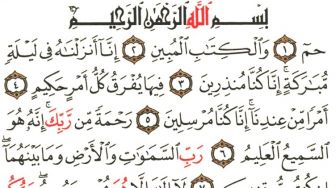 بِسْمِ اللَّهِ الرَّحْمَٰنِ الرَّحِيمِ
حمٓ ١ وَالْكِتَابِ الْمُبِينِ ٢ إِنَّا أَنزَلْنَاهُ فِي لَيْلَةٍ
مُّبَارَكَةٍ إِنَّا كُنَّا مُنذِرِينَ ٣ فِيهَا يُفْرَقُ كُلُّ أَمْرٍ حَكِيمٍ ٤
أَمْرًا مِّنْ عِندِنَا إِنَّا كُنَّا مُرْسِلِينَ ٥ رَحْمَةً مِّن رَّبِّكَ إِنَّهُ هُوَ
السَّمِيعُ الْعَلِيمُ ٦ رَبِّ السَّمَاوَاتِ وَالْأَرْضِ وَمَا بَيْنَهُمَا